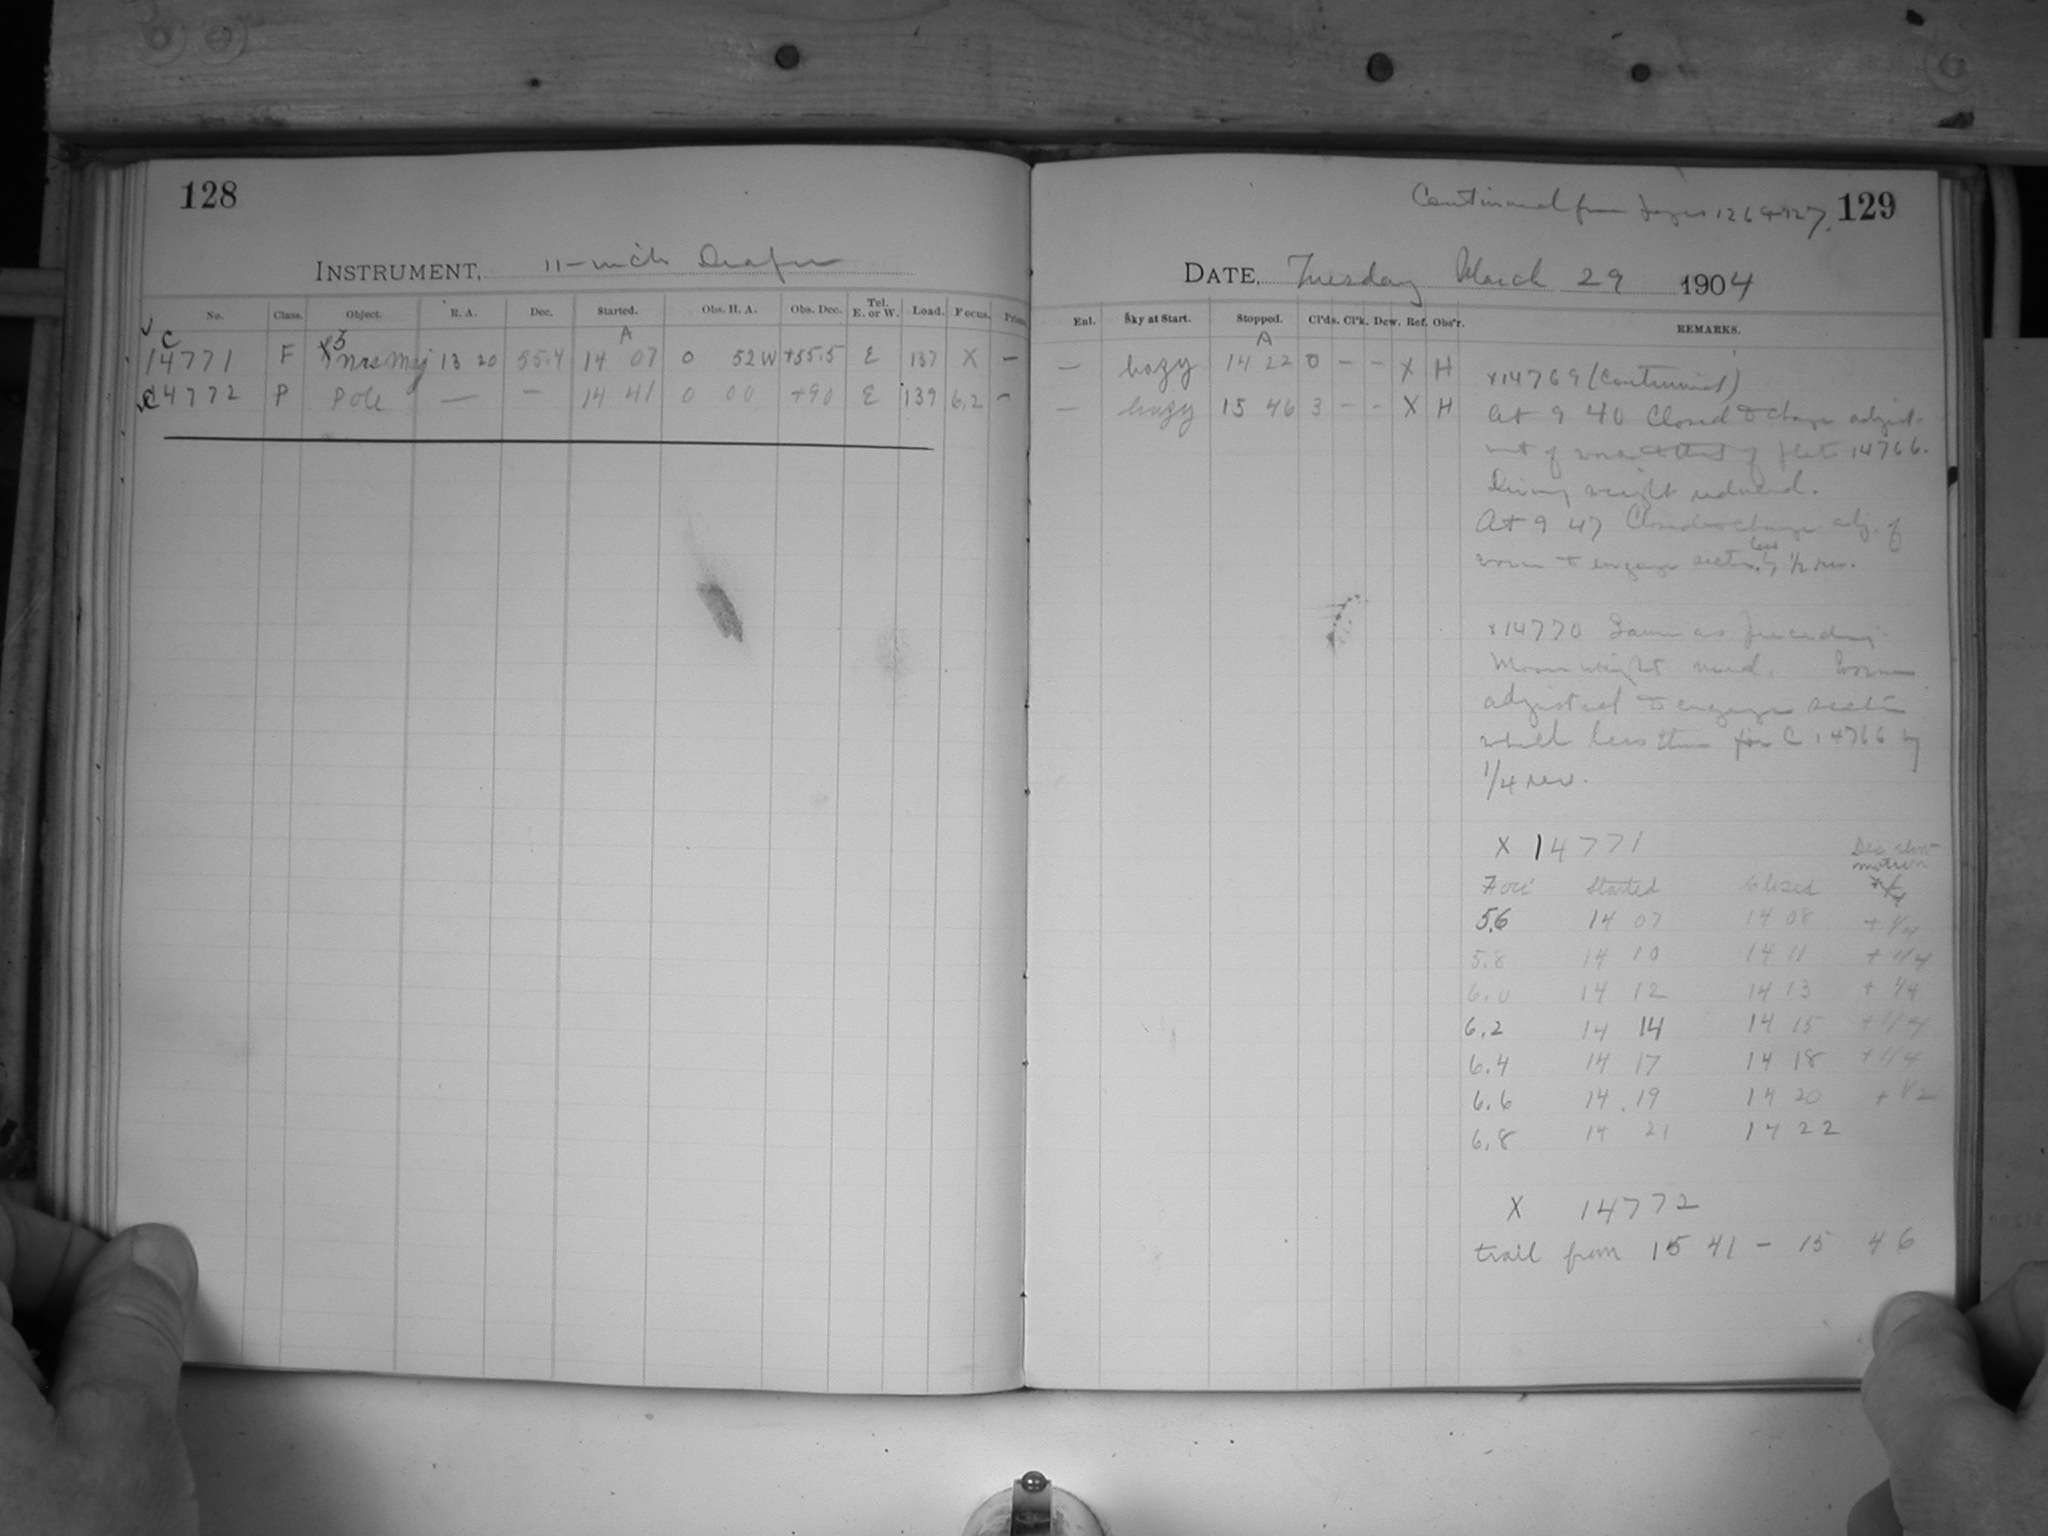 128
INSTRUMENT, 11-inch Draper
No. Class. Object. R. A. Dec. Started. Obs. H. A. Obs. Dec. Tel. E. or W. Load. Focus.
C 14771 F Urs Maj 13 20 55.4 A 14 07 0 52 W +55.5 E 137 X —
C 14772 P Pole — — 14 41 0 00 +90 E 139 6.2 —
Continued from pages 126 & 127. 129
DATE, Tuesday March 29 1904
Ent. Sky at Start. Stopped. Cl'ds. Cl'k. Dew. Ref. Obs'r. REMARKS.
— hazy A 14 22 0 — — X H
— hazy 15 46 3 — — X H
x14769 (Continued)
At 9 40 Closed to change adjust-
ment of of plate 14766.
Driving weight reduced.
At 9 47 Closed to change adj. of
worm to engage sector less by 1/2 rev.
x14770 Same as preceding.
Moon weight used. Worm
adjusted to engage sector
wheel less than for C 14766 by
1/4 rev.
X 14771
Foci Started Closed Dec slow motion
5.6 14 07 14 08 + 1/4
5.8 14 10 14 11 + 1/4
6.0 14 12 14 13 + 1/4
6.2 14 14 14 15 + 1/4
6.4 14 17 14 18 + 1/4
6.6 14 19 14 20 + 1/2
6.8 14 21 14 22
X 14772
trail from 15 41 — 15 46